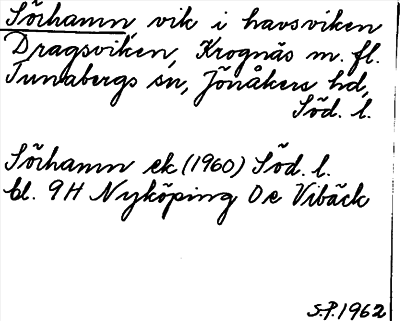 Sörhamn, vik i havsviken
Dragsviken, Krognäs m. fl.
Tunabergs sn, Jönåkers hd,
Söd. l.
Sörhamn ek (1960) Söd. l.
bl. 9H Nyköping 0e Vibäck
S.P. 1962